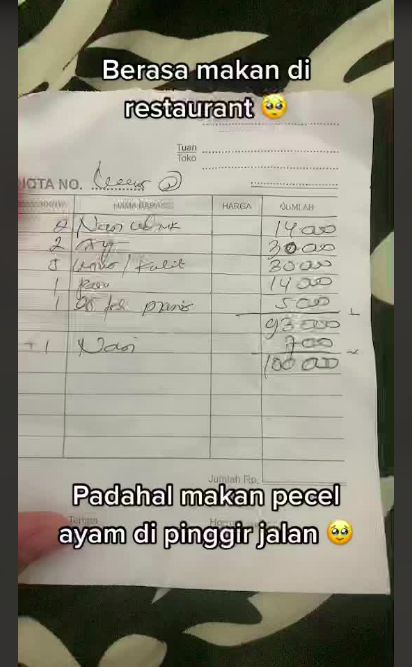 Berasa makan di
restaurant 🥺
Tuan
Toko
NOTA NO. Lesehan 2
NAMA BARANG HARGA JUMLAH
2 Nasi uduk 14000
2 Ayam 30000
5 / Kulit 30000
1 14000
1 es teh manis 5000
93000
+1 Nasi 7000
100000
Jumlah Rp.
Padahal makan pecel
ayam di pinggir jalan 🥺